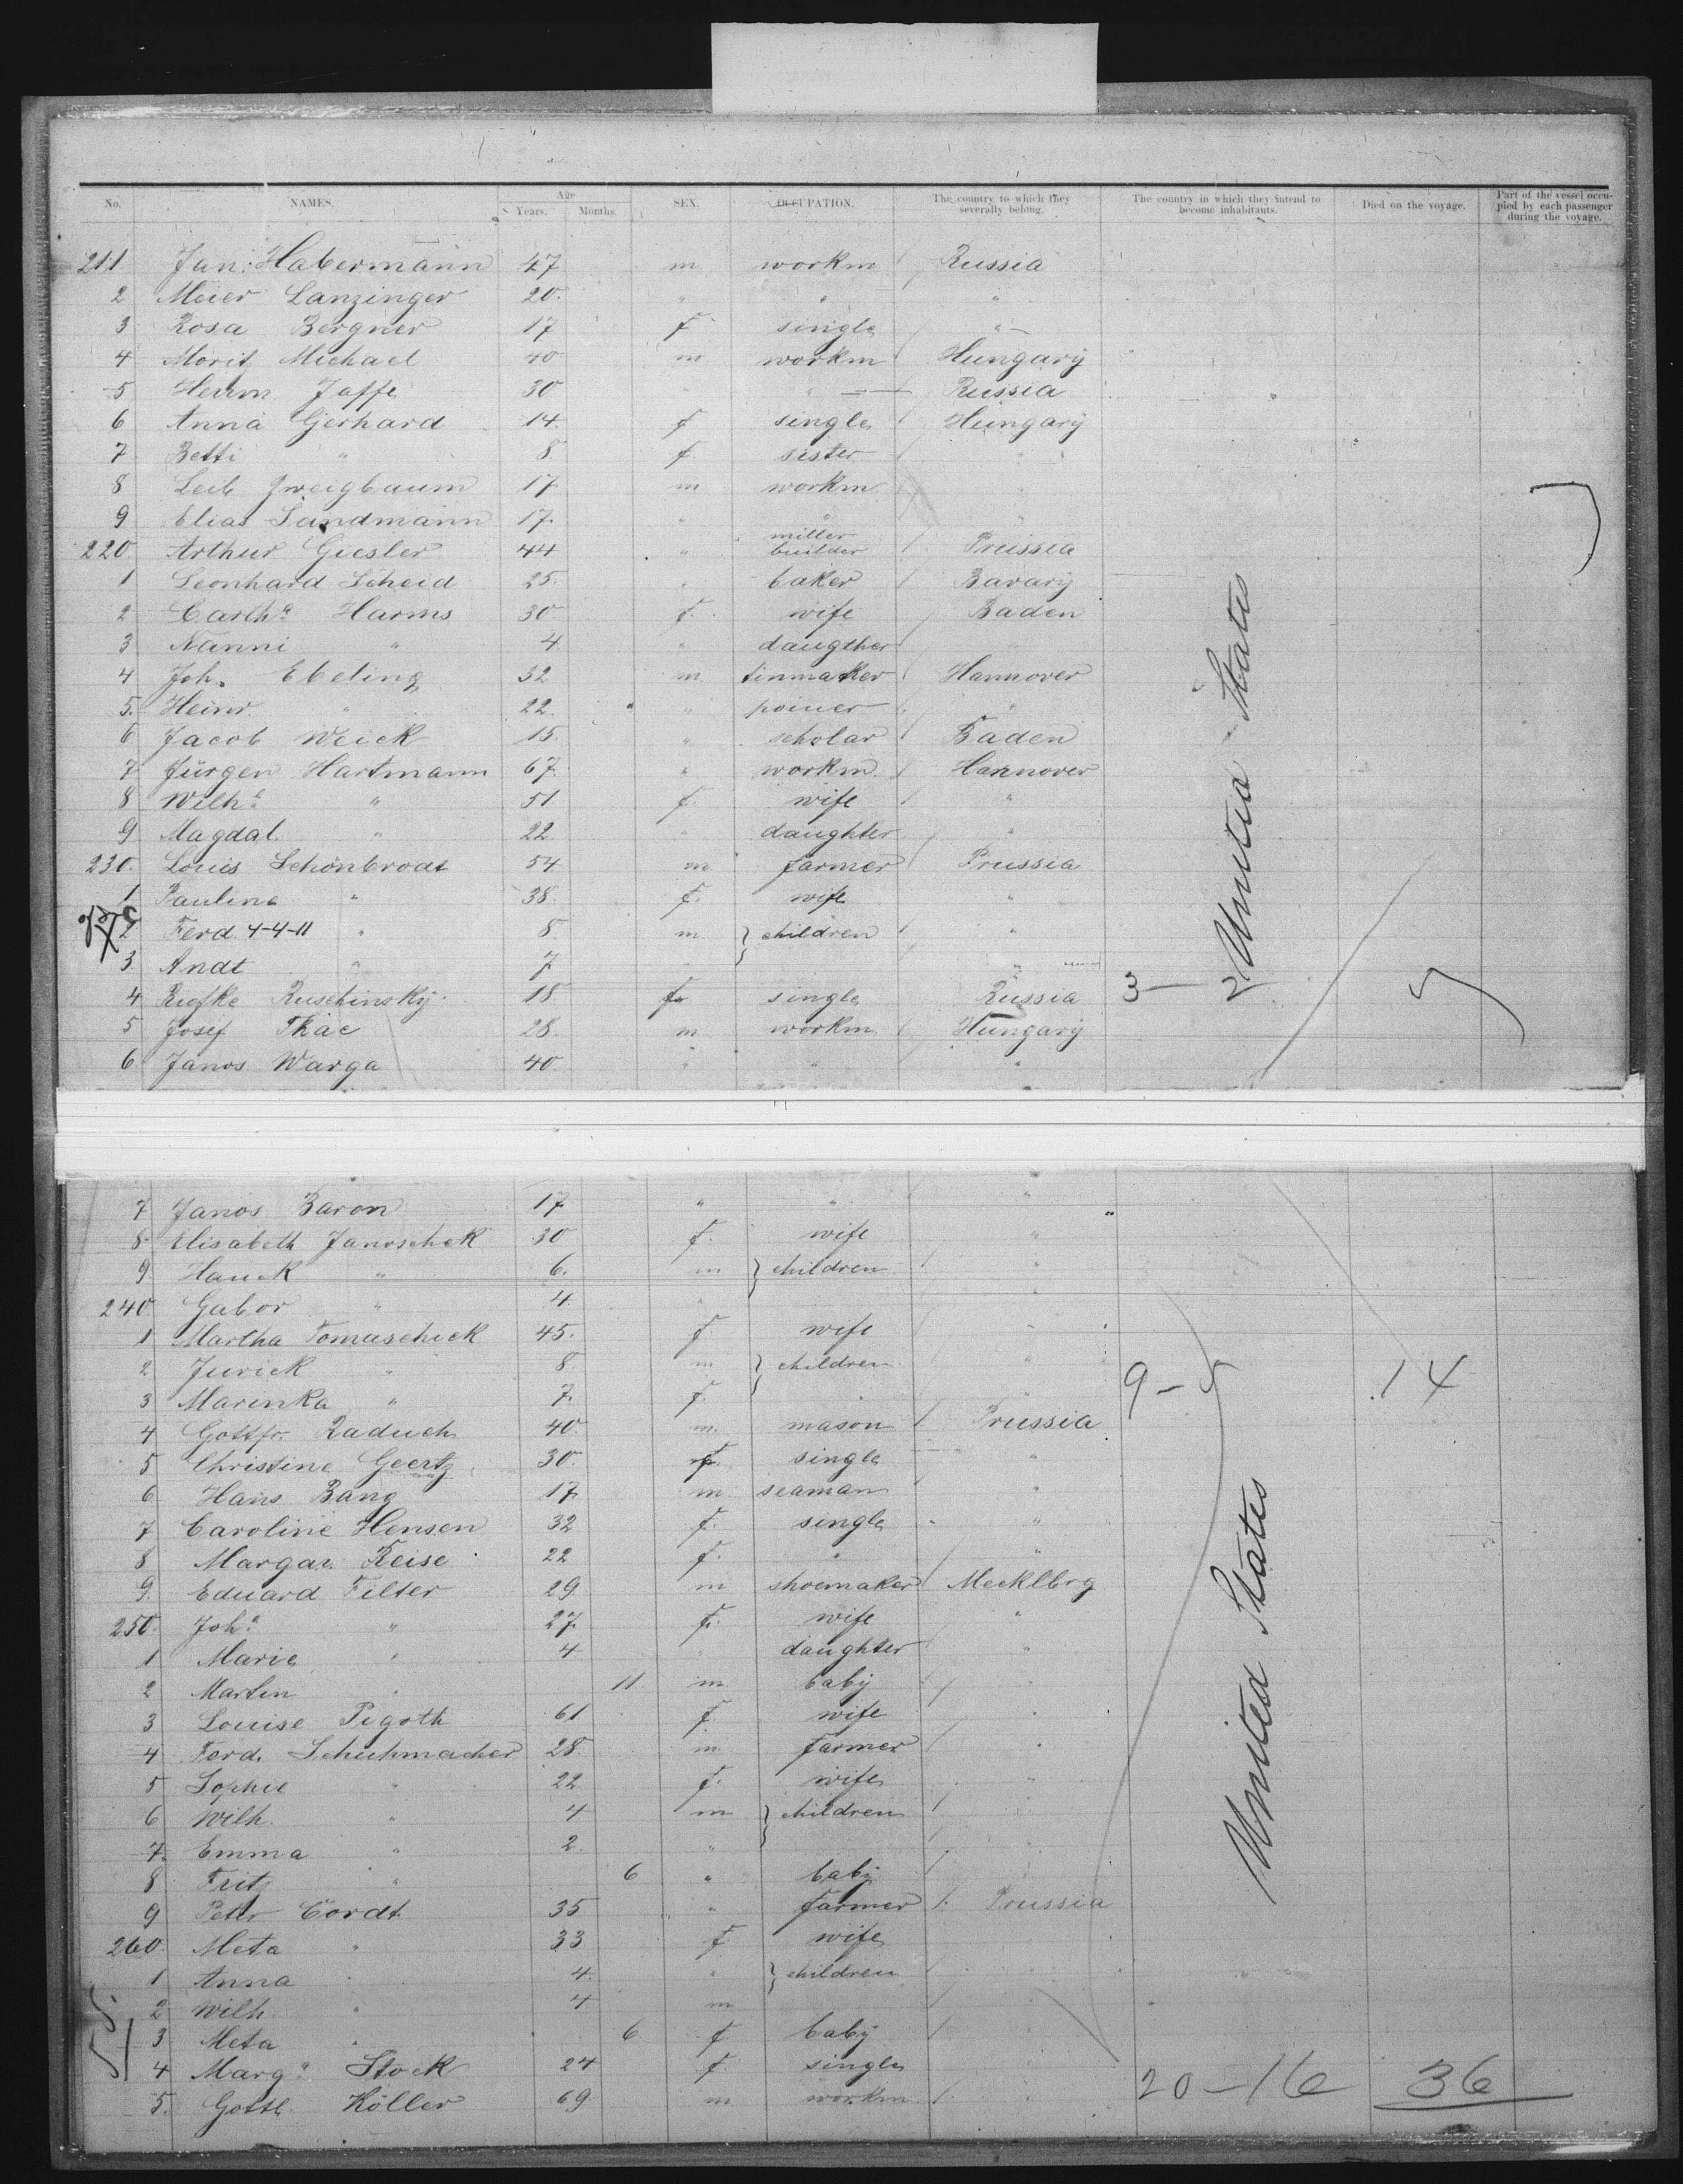 No. NAMES. Age Years. Months. SEX. OCCUPATION. The country to which they severally belong. The country in which they intend to become inhabitants. Died on the voyage. Part of the vessel occupied by each passenger during the voyage.
211 Jan: Habermann 47 m workm Russia
2 Meier Lanzinger 20. " " "
3 Rosa Bergner 17 f single "
4 Morit Michael 40 m workm Hungary
5 Herrm Jaffe 30 " " Russia
6 Anna Gerhard 14 f single Hungary
7 Betti " 8. f sister "
8 Leib Zweigbaum 17 m workm "
9 Elias Sandmann 17. " " "
220. Arthur Giesler 44 " miller builder Prussia
1 Leonhard Scheid 25. " baker Bavary
2 Cath.a Harms 30 f. wife Baden
3 Nanni " 4 " daugther "
4 Joh. Ebeling 32 m tinmaker Hannover
5. Heinr " 22. " poiner "
6 Jacob Weick 15. " scholar Baden
7 Jürgen Hartmann 67. " workm. Hannover
8 Wilh.e " 51 f. wife "
9 Magdal. " 22 " daughter "
230. Louis Schönbrodt 54. m farmer Prussia
1 Paulina " 38. f. wife "
2 Ferd. 4-4-11 " 8 m } children "
3. Andt " 7 " "
4 Riefke Ruschinsky 18 f single Russia 3 - 2 5
5 Josef Tkac 28. m workm Hungary
6 Janos Warga 40 " " "
United States
7 Janos Baron 17 " " "
8. Elisabeth Janoschek 30 f. wife "
9 Hauck " 6. m } children "
240. Gabor " 4. " "
1 Martha Tomaschick 45. f wife "
2 Jurick " 8. m } children "
3 Marinka " 7. f. " 9 - 5 14
4 Gottfr. Raduch 40. m. mason Prussia
5 Christine Geertz 30. f. single "
6 Hans Bang 17 m seaman "
7 Caroline Hensen 32 f. single "
8 Margar. Reise 22 f. " "
9. Eduard Filter 29 m shoemaker Mecklbrg
250. Joh.a " 27. f. wife "
1 Marie " 4 " daughter "
2 Martin " 11 m baby "
3 Louise Pigoth 61 f wife "
4 Ferd. Schuhmacher 28. m farmer "
5 Sophie " 22 f. wife "
6 Wilh. " 4 m } children "
7. Emma " 2. "
8 Fritz " 6 " baby
9 Peter Cordt 35 " farmer Prussia
260. Meta " 33 f wife
1 Anna " 4. " } children
2 Wilh. " 4 m
3 Meta " 6 f baby
4 Marg.a Stock 24 f single
5. Gottl. Köller 69 m workm
United States
20 - 16 36